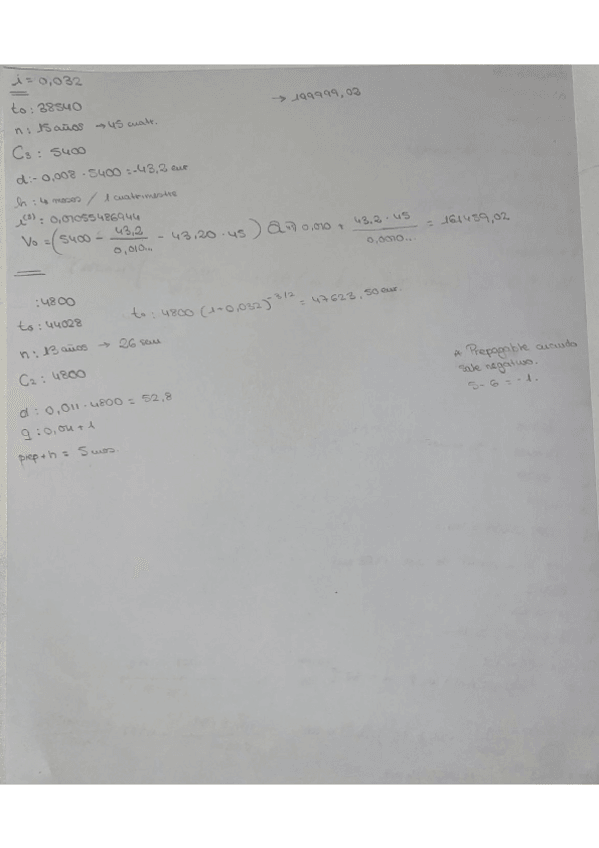 i = 0,032
→ 199999,03
to: 38540
n: 15 años → 45 cuatr.
C3: 5400
d: - 0,008 · 5400 = -43,2 eur
h: 4 meses / 1 cuatrimestre
i(3): 0,01055486944
Vo = (5400 - 43,2 / 0,010... - 43,20 · 45) a 0,010 + 43,2 · 45 / 0,0010... = 161459,02
:4800
to: 44028
to: 4800 (1-0,032)^-3/2 = 47623,50 eur.
n: 13 años → 26 sem
C2: 4800
d: 0,011 · 4800 = 52,8
g: 0,011 + 1
prep → h = 5 mes.
* Prepagable cuando
sale negativo.
5 - 6 = -1.